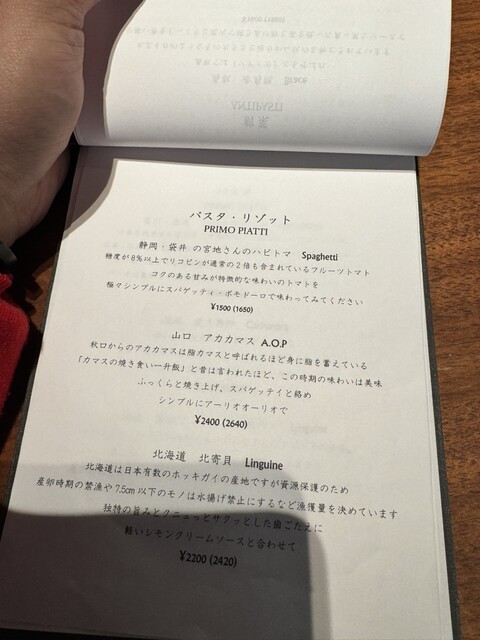 前菜
ANTIPASTI
パスタ・リゾット
PRIMO PIATTI
静岡・袋井 の宮地さんのハピトマ Spaghetti
糖度が8%以上でリコピンが通常の2倍も含まれているフルーツトマト
コクのある甘みが特徴的な味わいのトマトを
極々シンプルにスパゲッティ・ポモドーロで味わってみてください
¥1500 (1650)
山口 アカカマス A.O.P
秋口からのアカカマスは脂カマスと呼ばれるほど身に脂を蓄えている
「カマスの焼き食い一升飯」と昔は言われたほど、この時期の味わいは美味
ふっくらと焼き上げ、スパゲッテイと絡め
シンプルにアーリオオーリオで
¥2400 (2640)
北海道 北寄貝 Linguine
北海道は日本有数のホッキガイの産地ですが資源保護のため
産卵時期の禁漁や7.5cm以下のモノは水揚げ禁止にするなど漁獲量を決めています
独特の旨みとクニュっとサクッとした歯ごたえに
軽いレモンクリームソースと合わせて
¥2200 (2420)